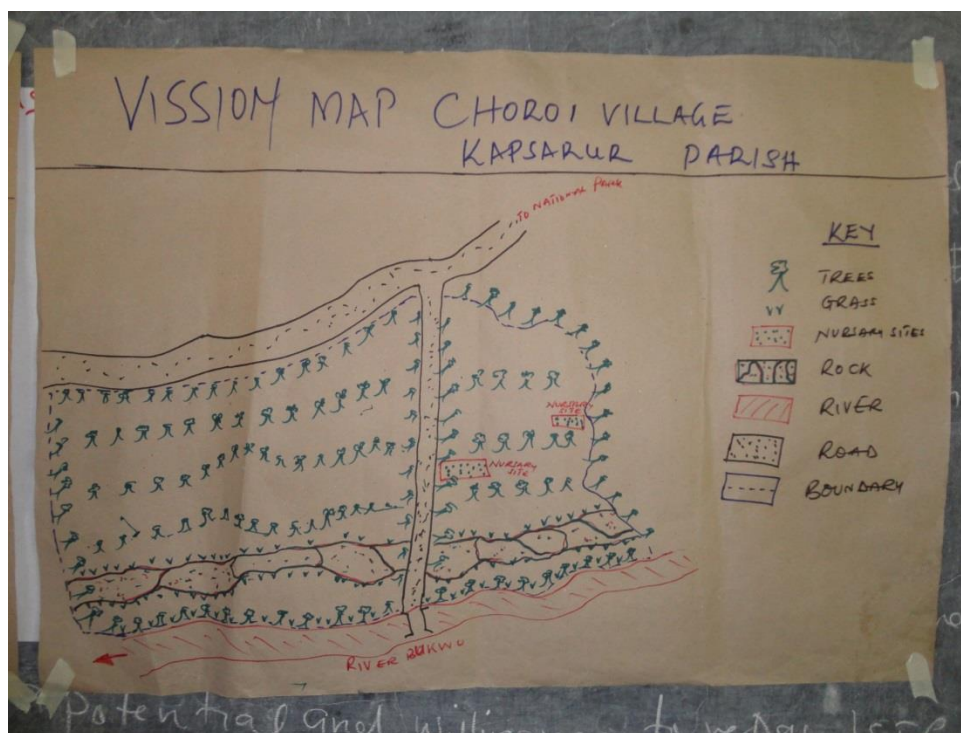 VISSION MAP CHOROI VILLAGE
KAPSARUR PARISH
TO NATIONAL PARK
KEY
TREES
GRASS
NURSARY SITES
ROCK
RIVER
ROAD
BOUNDARY
NURSARY
SITE
NURSARY
SITE
RIVER BUKWU
Potential and